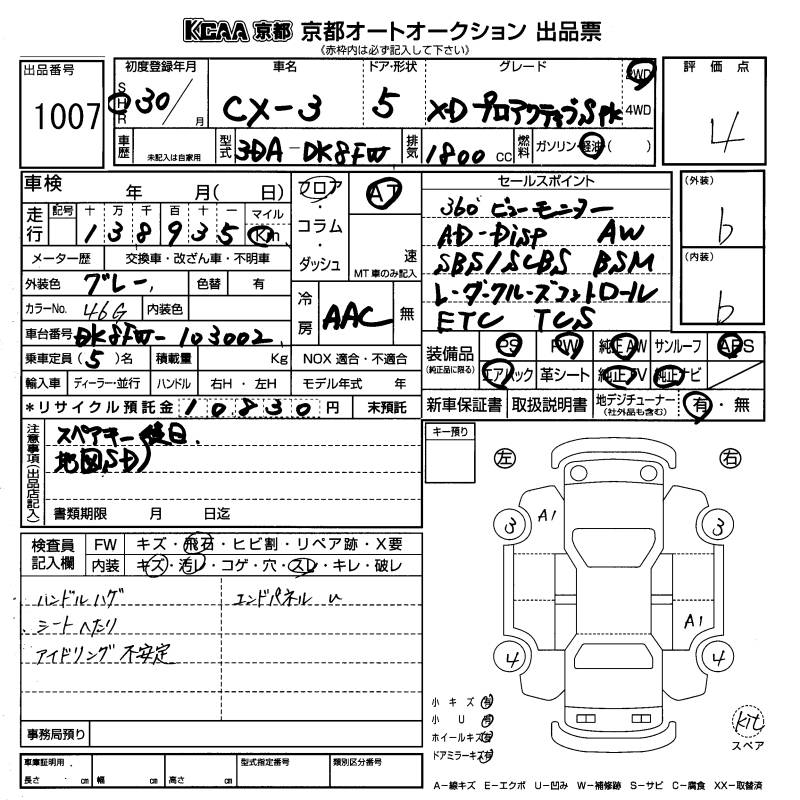 KCAA 京都 京都オートオークション 出品票
《赤枠内は必ず記入して下さい》
出品番号 1007
初度登録年月 S H R 30 / 月
車名 CX-3
ドア・形状 5
グレード XD プロアクティブSpk
2WD 4WD
評価点 4
車歴 未記入は自家用
型式 3DA-DK8FW
排気 1800 cc
燃料 ガソリン・軽油( )
車検 年 月( 日)
走行 記号 十 万 千 百 十 一 マイル
138935 Km
メーター歴 交換車・改ざん車・不明車
外装色 グレー 色替 有
カラーNo. 46G 内装色
車台番号 DK8FW-103002
乗車定員(5)名 積載量 Kg
輸入車 ディーラー・並行 ハンドル 右H・左H
フロア・コラム・ダッシュ
AT
速
MT車のみ記入
冷房 AAC 無
NOX 適合・不適合
モデル年式 年
*リサイクル預託金 10830 円 未預託
セールスポイント
360°ビューモニター
AD-Disp AW
SBS/SCBS BSM
レーダークルーズコントロール
ETC TCS
(外装) b
(内装) b
装備品 (純正品に限る)
PS PW 純正AW サンルーフ ABS
エアバック 革シート 純正TV 純正ナビ
新車保証書 取扱説明書 地デジチューナー (社外品も含む) 有・無
注意事項(出品店記入)
スペアキー後日
地図SD)
書類期限 月 日迄
キー預り
左 右
検査員記入欄
FW キズ・飛石・ヒビ割・リペア跡・X要
内装 キズ・汚レ・コゲ・穴・スレ・キレ・破レ
ハンドルハゲ エンドパネル u
シートへたり
アイドリング不安定
事務局預り
3 A1 3
A1
4 4
小キズ 有
小U 有
ホイールキズ 有
ドアミラーキズ 有
kit
スペア
車庫証明用 長さ cm 幅 cm 高さ cm 型式指定番号 類別区分番号
A−線キズ E−エクボ U−凹み W−補修跡 S−サビ C−腐食 XX−取替済